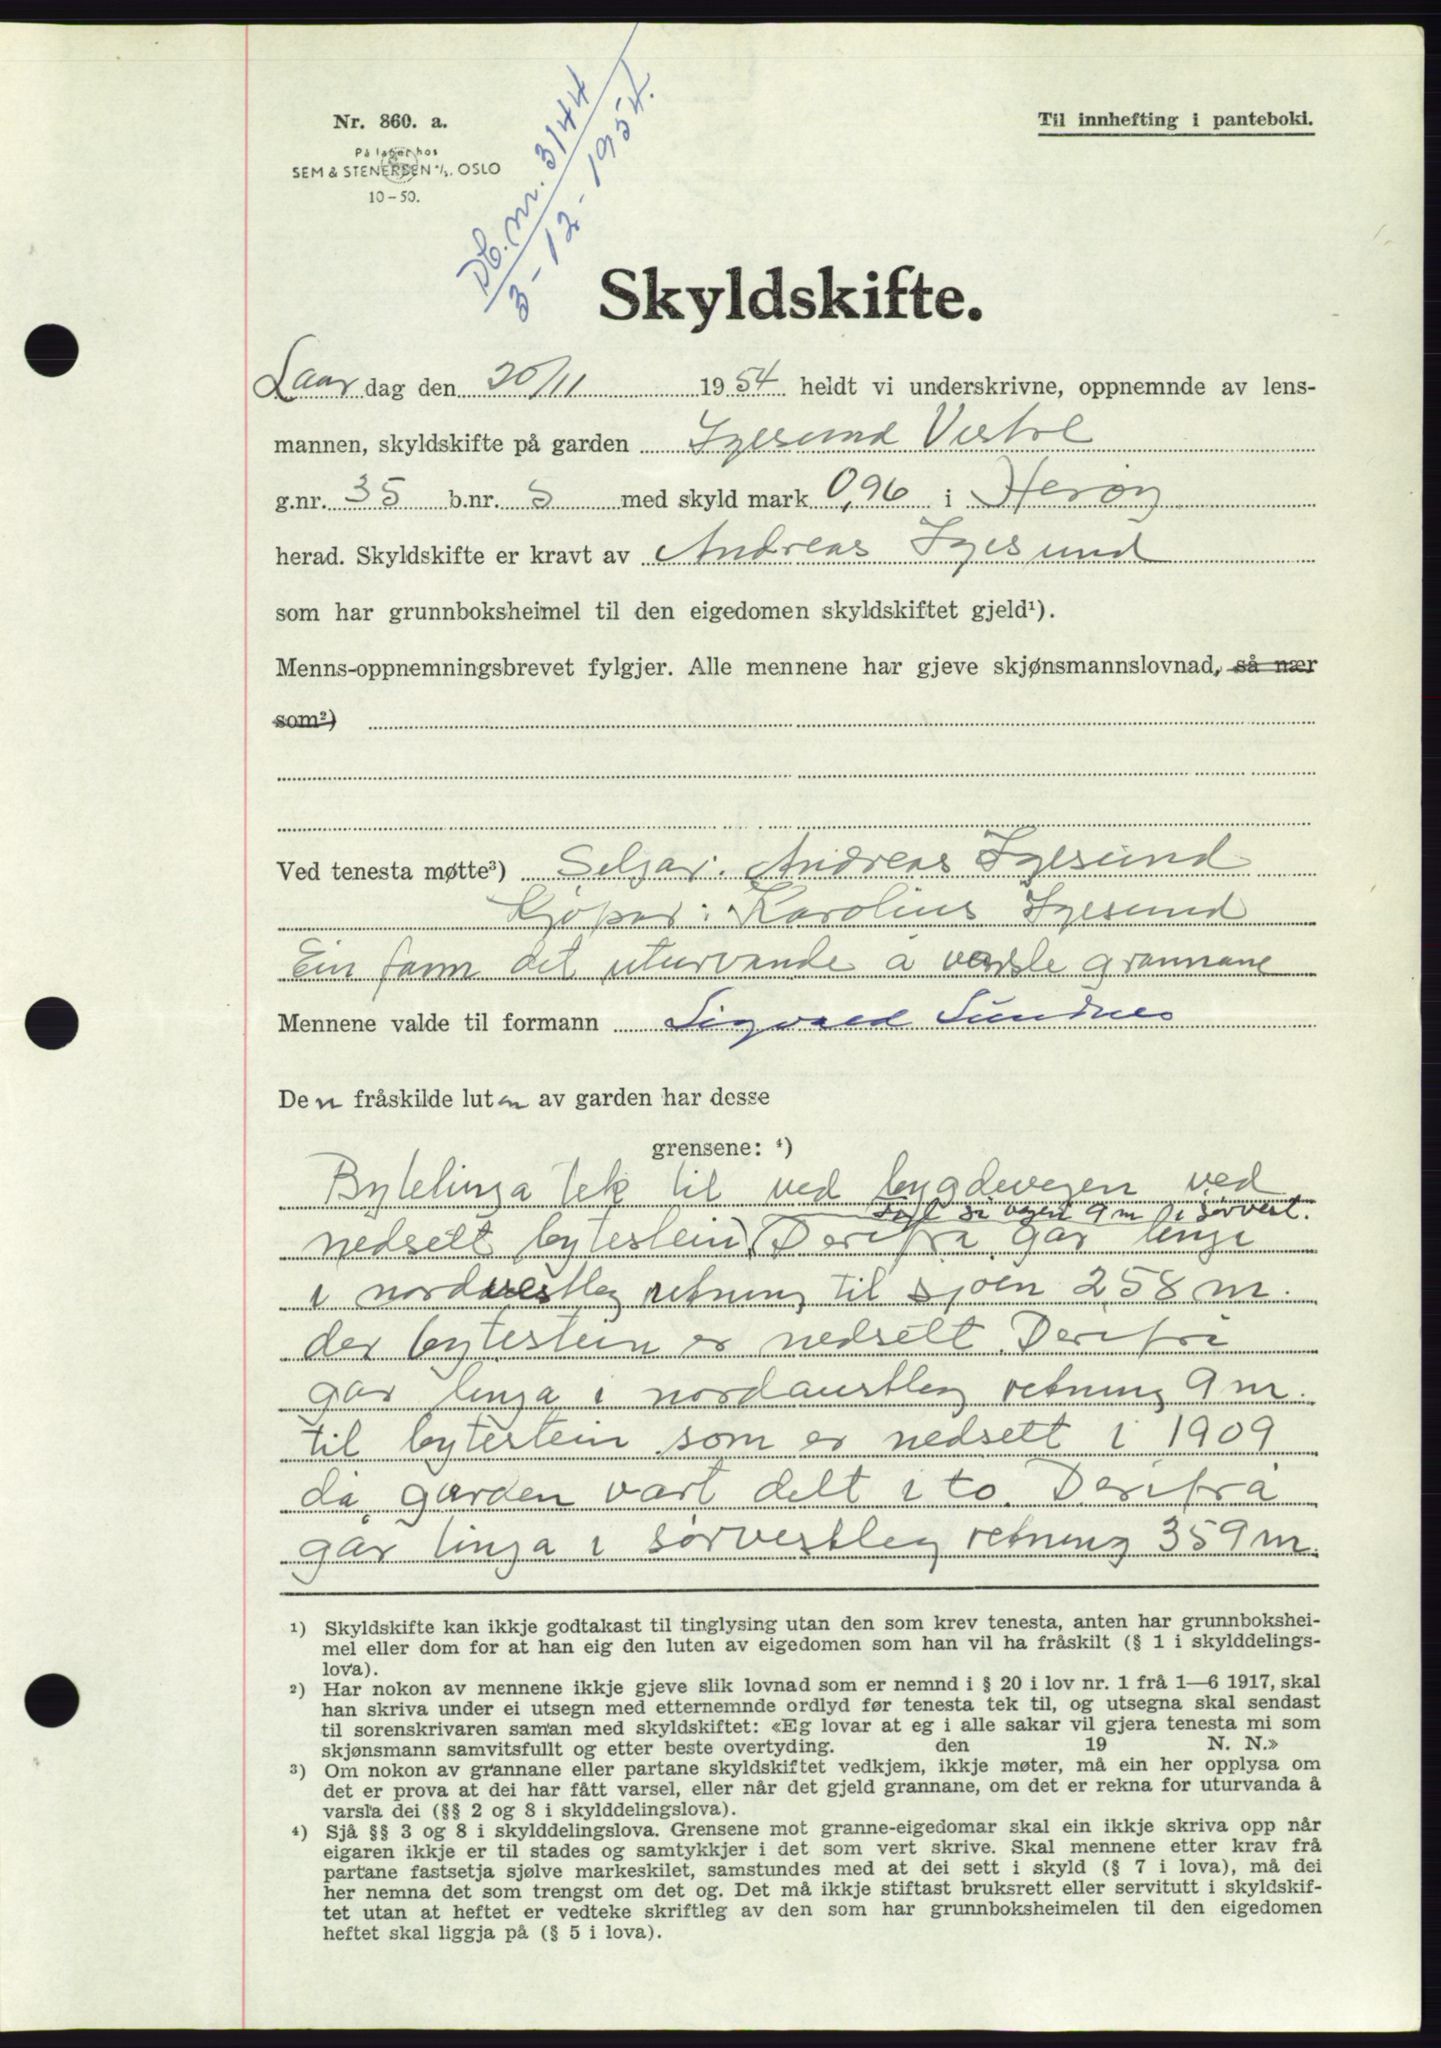 Nr. 860. a.
På lager hos
SEM & STENERSEN A/S, OSLO
10-50.
Db. nr. 3144
3-12-1954.
Til innhefting i panteboki.
Skyldskifte.
Laur dag den 20/11 1954 heldt vi underskrivne, oppnemnde av lens-
mannen, skyldskifte på garden Igesund Vestre
g.nr. 35 b.nr. 5 med skyld mark 0,96 i Herøy
herad. Skyldskifte er kravt av Andreas Igesund
som har grunnboksheimel til den eigedomen skyldskiftet gjeld¹).
Menns-oppnemningsbrevet fylgjer. Alle mennene har gjeve skjønsmannslovnad, så nær
som²)
Ved tenesta møtte³) Seljar: Andreas Igesund
Kjøpar: Karolius Igesund
Ein fann det uturvande å varsle grannane
Mennene valde til formann Sigvald Sundnes
Den fråskilde luten av garden har desse
grensene: ⁴)
Bytelinja tek til ved bygdevegen ved
vegen 9 m i sørvest.
nedsett bytestein, Derifrå går linje
i nordvestleg retning til sjøen 258 m.
der bytestein er nedsett. Derifrå
går linja i nordaustleg retning 9 m.
til bytestein som er nedsett i 1909
då garden vart delt i to. Derifrå
går linja i sørvestleg retning 359 m.
¹) Skyldskifte kan ikkje godtakast til tinglysing utan den som krev tenesta, anten har grunnbokshei-
mel eller dom for at han eig den luten av eigedomen som han vil ha fråskilt (§ 1 i skylddelings-
lova).
²) Har nokon av mennene ikkje gjeve slik lovnad som er nemnd i § 20 i lov nr. 1 frå 1—6 1917, skal
han skriva under ei utsegn med etternemnde ordlyd før tenesta tek til, og utsegna skal sendast
til sorenskrivaren saman med skyldskiftet: «Eg lovar at eg i alle sakar vil gjera tenesta mi som
skjønsmann samvitsfullt og etter beste overtyding. den 19 N. N.»
³) Om nokon av grannane eller partane skyldskiftet vedkjem, ikkje møter, må ein her opplysa om
det er prova at dei har fått varsel, eller når det gjeld grannane, om det er rekna for uturvanda å
varsla dei (§§ 2 og 8 i skylddelingslova).
⁴) Sjå §§ 3 og 8 i skylddelingslova. Grensene mot granne-eigedomar skal ein ikkje skriva opp når
eigaren ikkje er til stades og samtykkjer i det som vert skrive. Skal mennene etter krav frå
partane fastsetja sjølve markeskilet, samstundes med at dei sett i skyld (§ 7 i lova), må dei
her nemna det som trengst om det og. Det må ikkje stiftast bruksrett eller servitutt i skyldskif-
tet utan at heftet er vedteke skriftleg av den som har grunnboksheimelen til den eigedomen
heftet skal liggja på (§ 5 i lova).